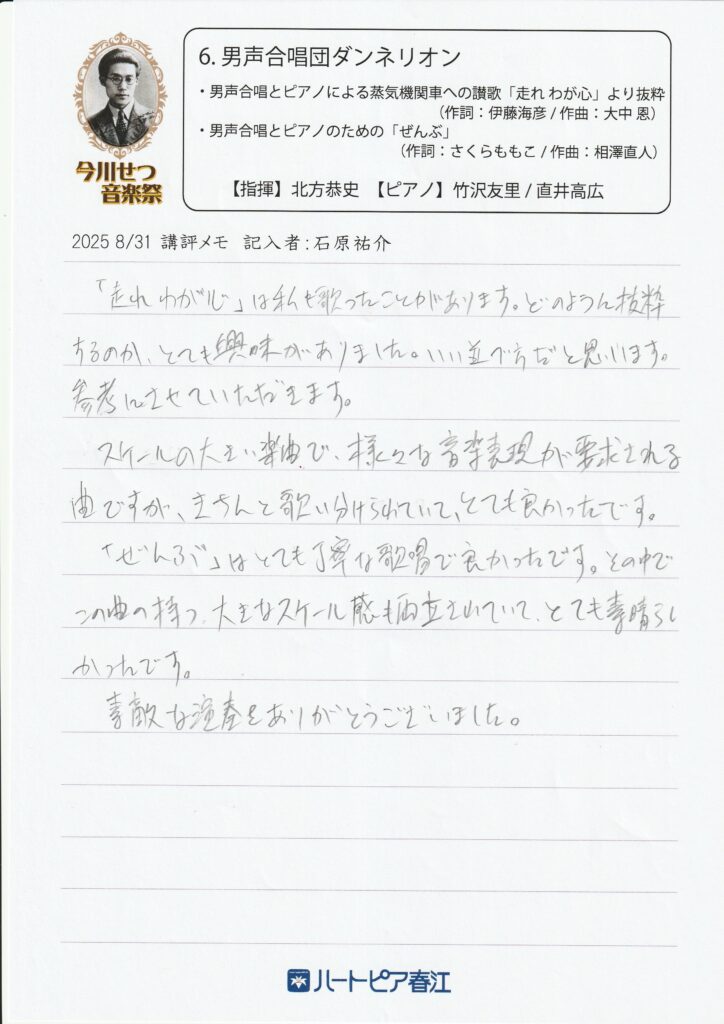 6. 男声合唱団ダンネリオン
・男声合唱とピアノによる蒸気機関車への讃歌「走れ わが心」より抜粋
(作詞：伊藤海彦 / 作曲：大中 恩)
・男声合唱とピアノのための「ぜんぶ」
(作詞：さくらももこ / 作曲：相澤直人)
【指揮】北方恭史 【ピアノ】竹沢友里 / 直井高広
今川せつ
音楽祭
2025 8/31 講評メモ 記入者：石原祐介
「走れ わが心」は私も歌ったことがあります。どのように抜粋
するのか、とても興味がありました。いい並べ方だと思います。
参考にさせていただきます。
スケールの大きい楽曲で、様々な音楽表現が要求される
曲ですが、きちんと歌い分けられていて、とても良かったです。
「ぜんぶ」はとても丁寧な歌唱で良かったです。その中で
この曲の持つ、大きなスケール感も両立されていて、とても素晴らし
かったです。
素敵な演奏をありがとうございました。
ハートピア春江